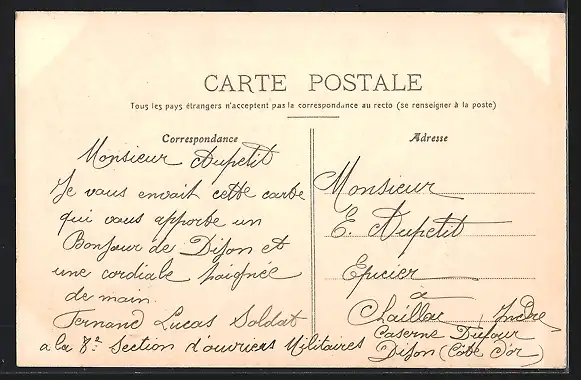 CARTE POSTALE
Tous les pays étrangers n'acceptent pas la correspondance au recto (se renseigner à la poste)
Correspondance
Monsieur Dupetit
Je vous envoit cette carte
qui vous apporte un
Bonjour de Dijon et
une cordiale poignée
de main.
Fernand Lucas Soldat
a la 8e Section d'ouvriers Militaires
Caserne Dufour
Dijon (Côte d'or)
Adresse
Monsieur
E. Dupetit
Epicier
à
Chaillac, Indre